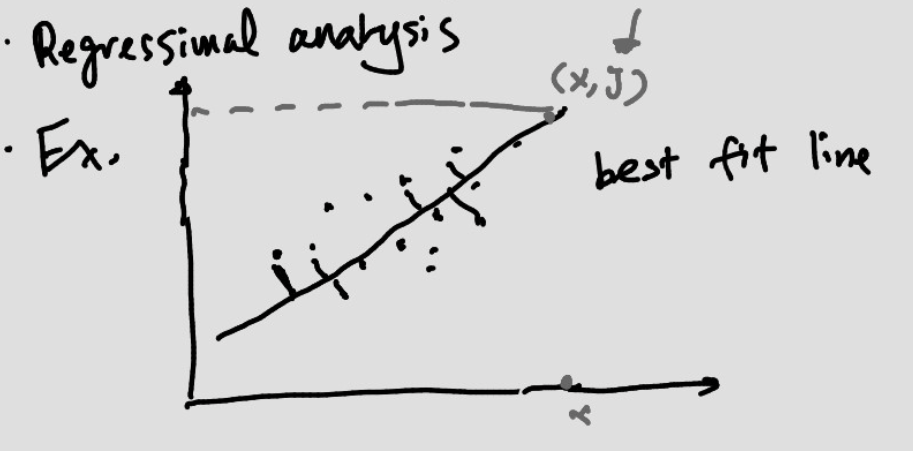 · Regressimal analysis
(x, y)
· Ex.
best fit line
x